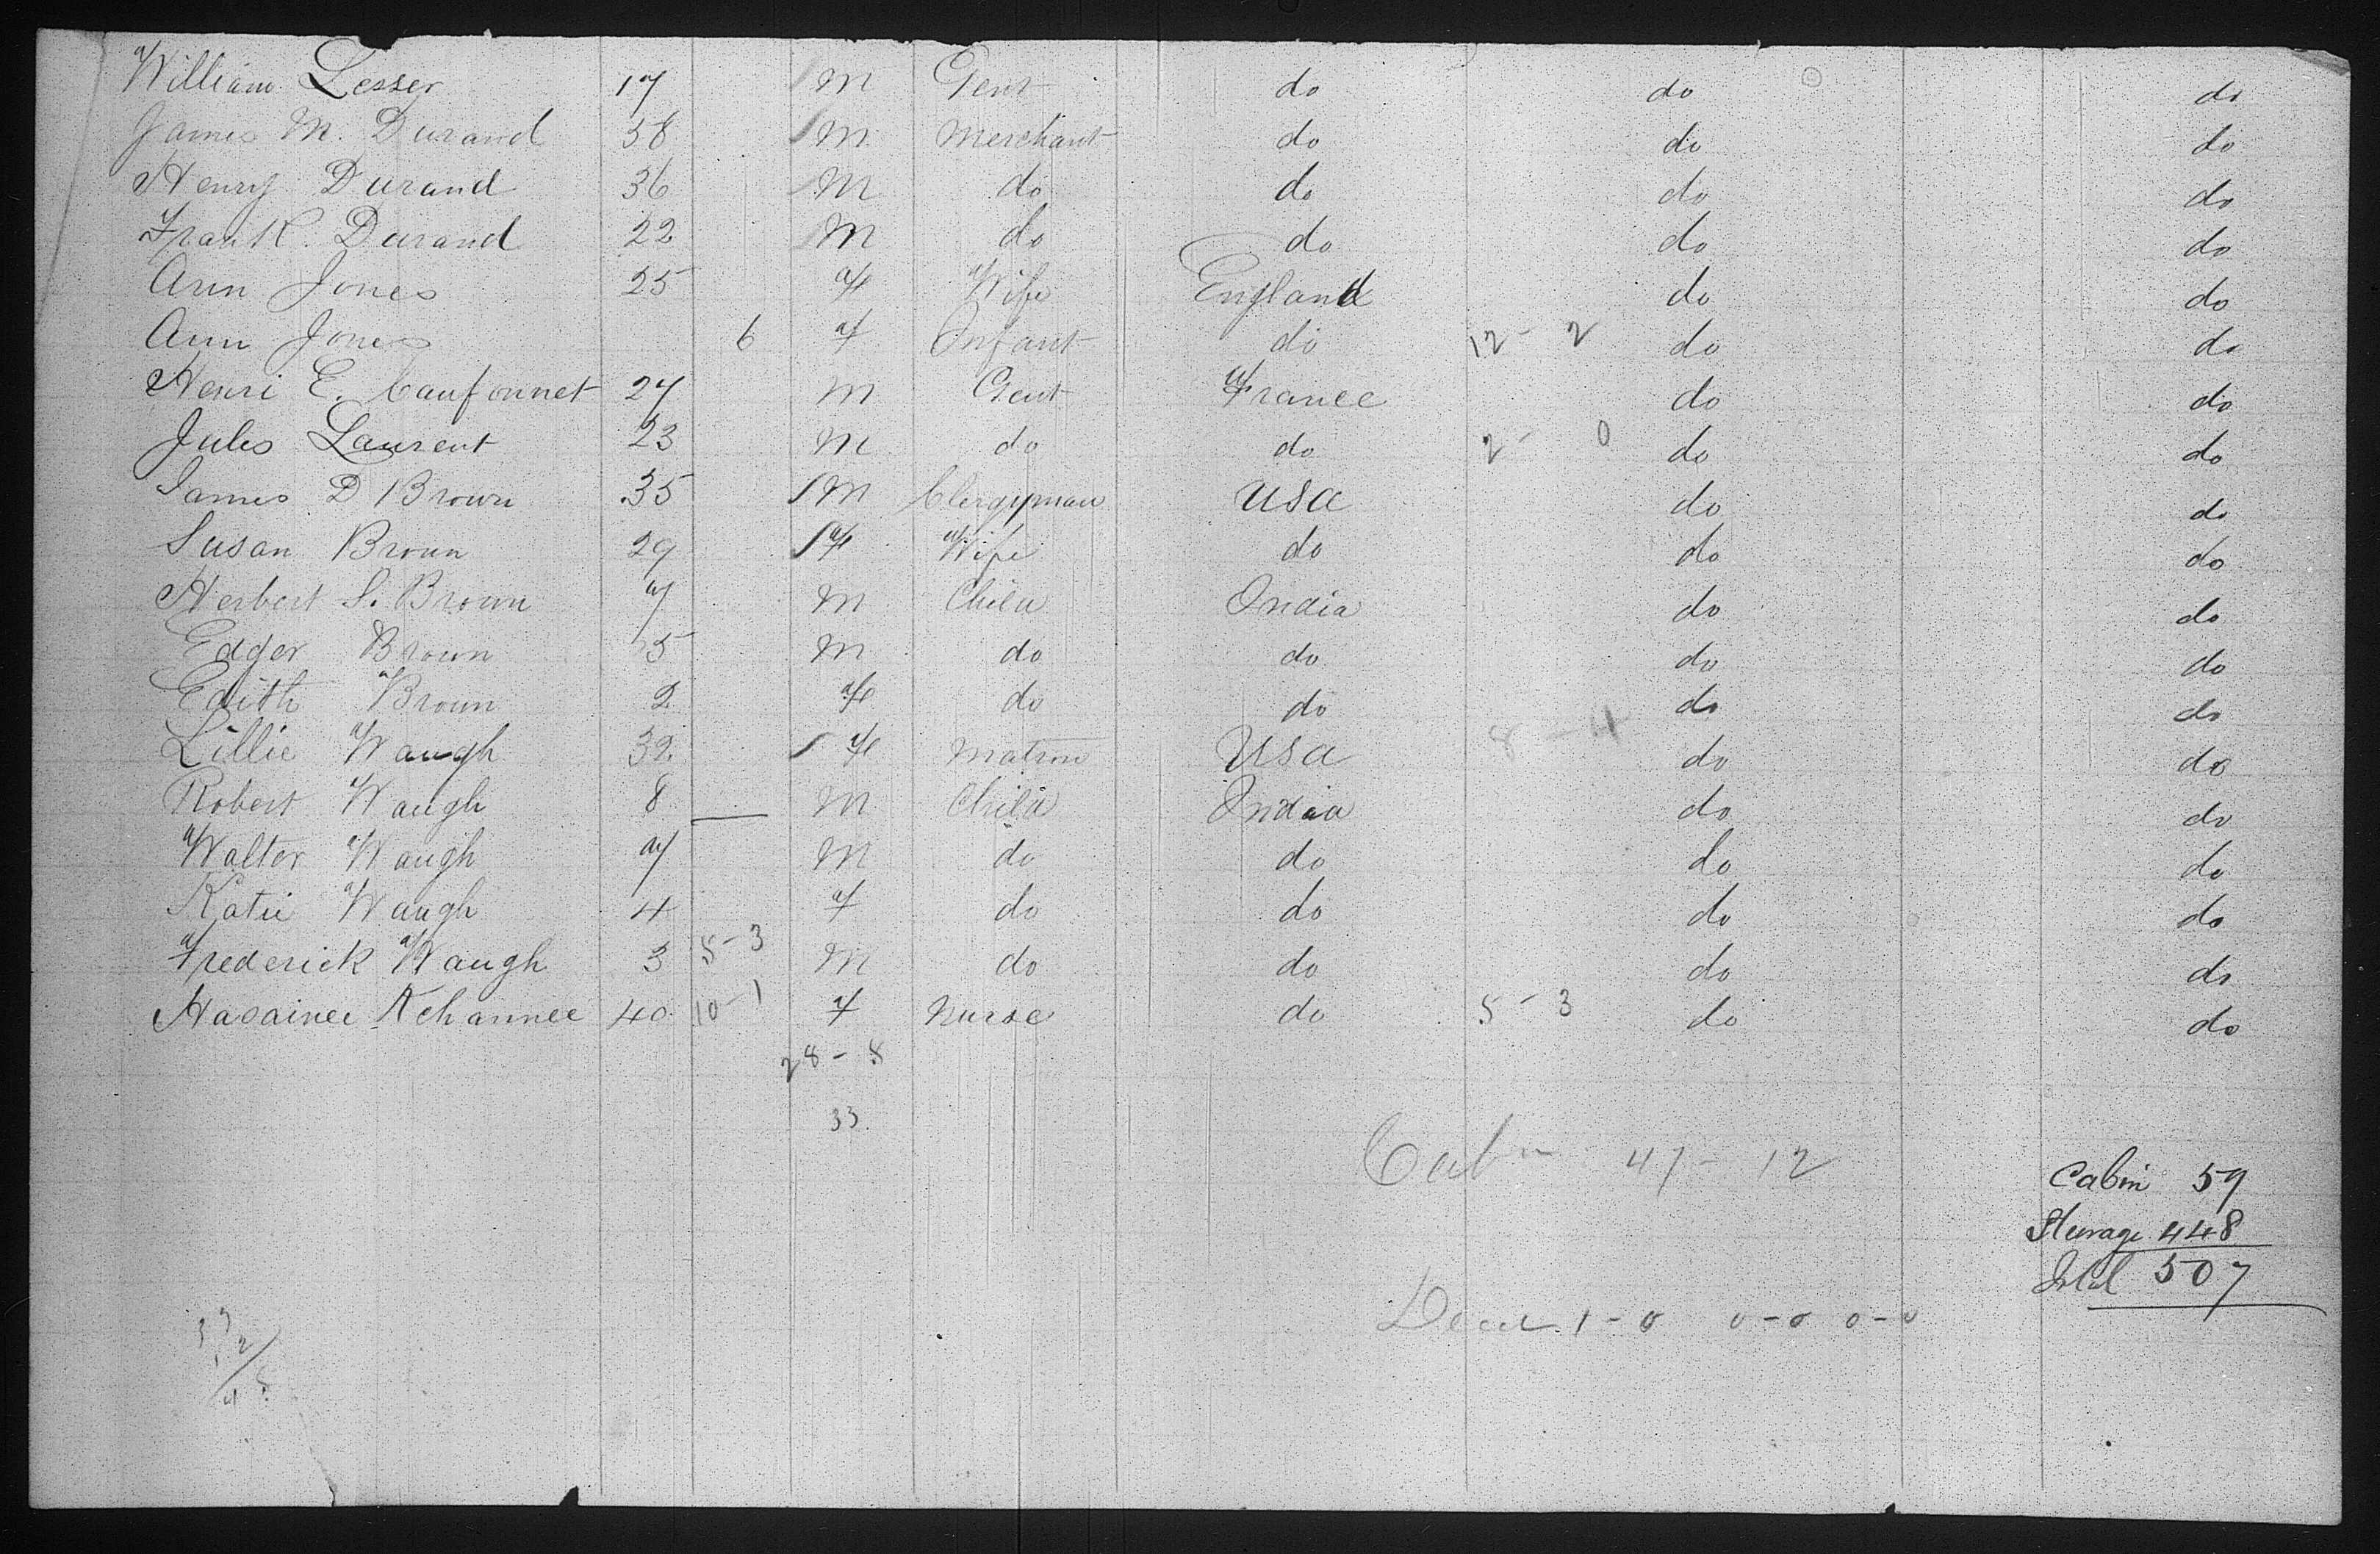 William Lesser 17 M Gent do do do
James M. Durand 38 M Merchant do do do
Henry Durand 36 M do do do do
Frank Durand 22 M do do do do
Ann Jones 25 F Wife England do do
Ann Jones 6 F Infant do 12 - 2 do do
Henri E. Caufonnet 27 M Gent France do do
Jules Laurent 23 M do do 2 - 0 do do
James D Brown 35 M Clergyman USA do do
Susan Brown 29 F Wife do do do
Herbert S. Brown 7 M Child India do do
Edger Brown 5 M do do do do
Edith Brown 2 F do do do do
Lillie Waugh 32 F Matron USA 8 - 4 do do
Robert Waugh 8 M Child India do do
Walter Waugh 7 M do do do do
Katie Waugh 4 F do do do do
Frederick Waugh 3 5-3 M do do do do
Hasainee Khannee 40 10-1 F Nurse do 5 - 3 do do
28 - 8
33
Cabin 47 - 12
Cabin 59
Sterage 448
Total 507
1-0 0-0 0-0